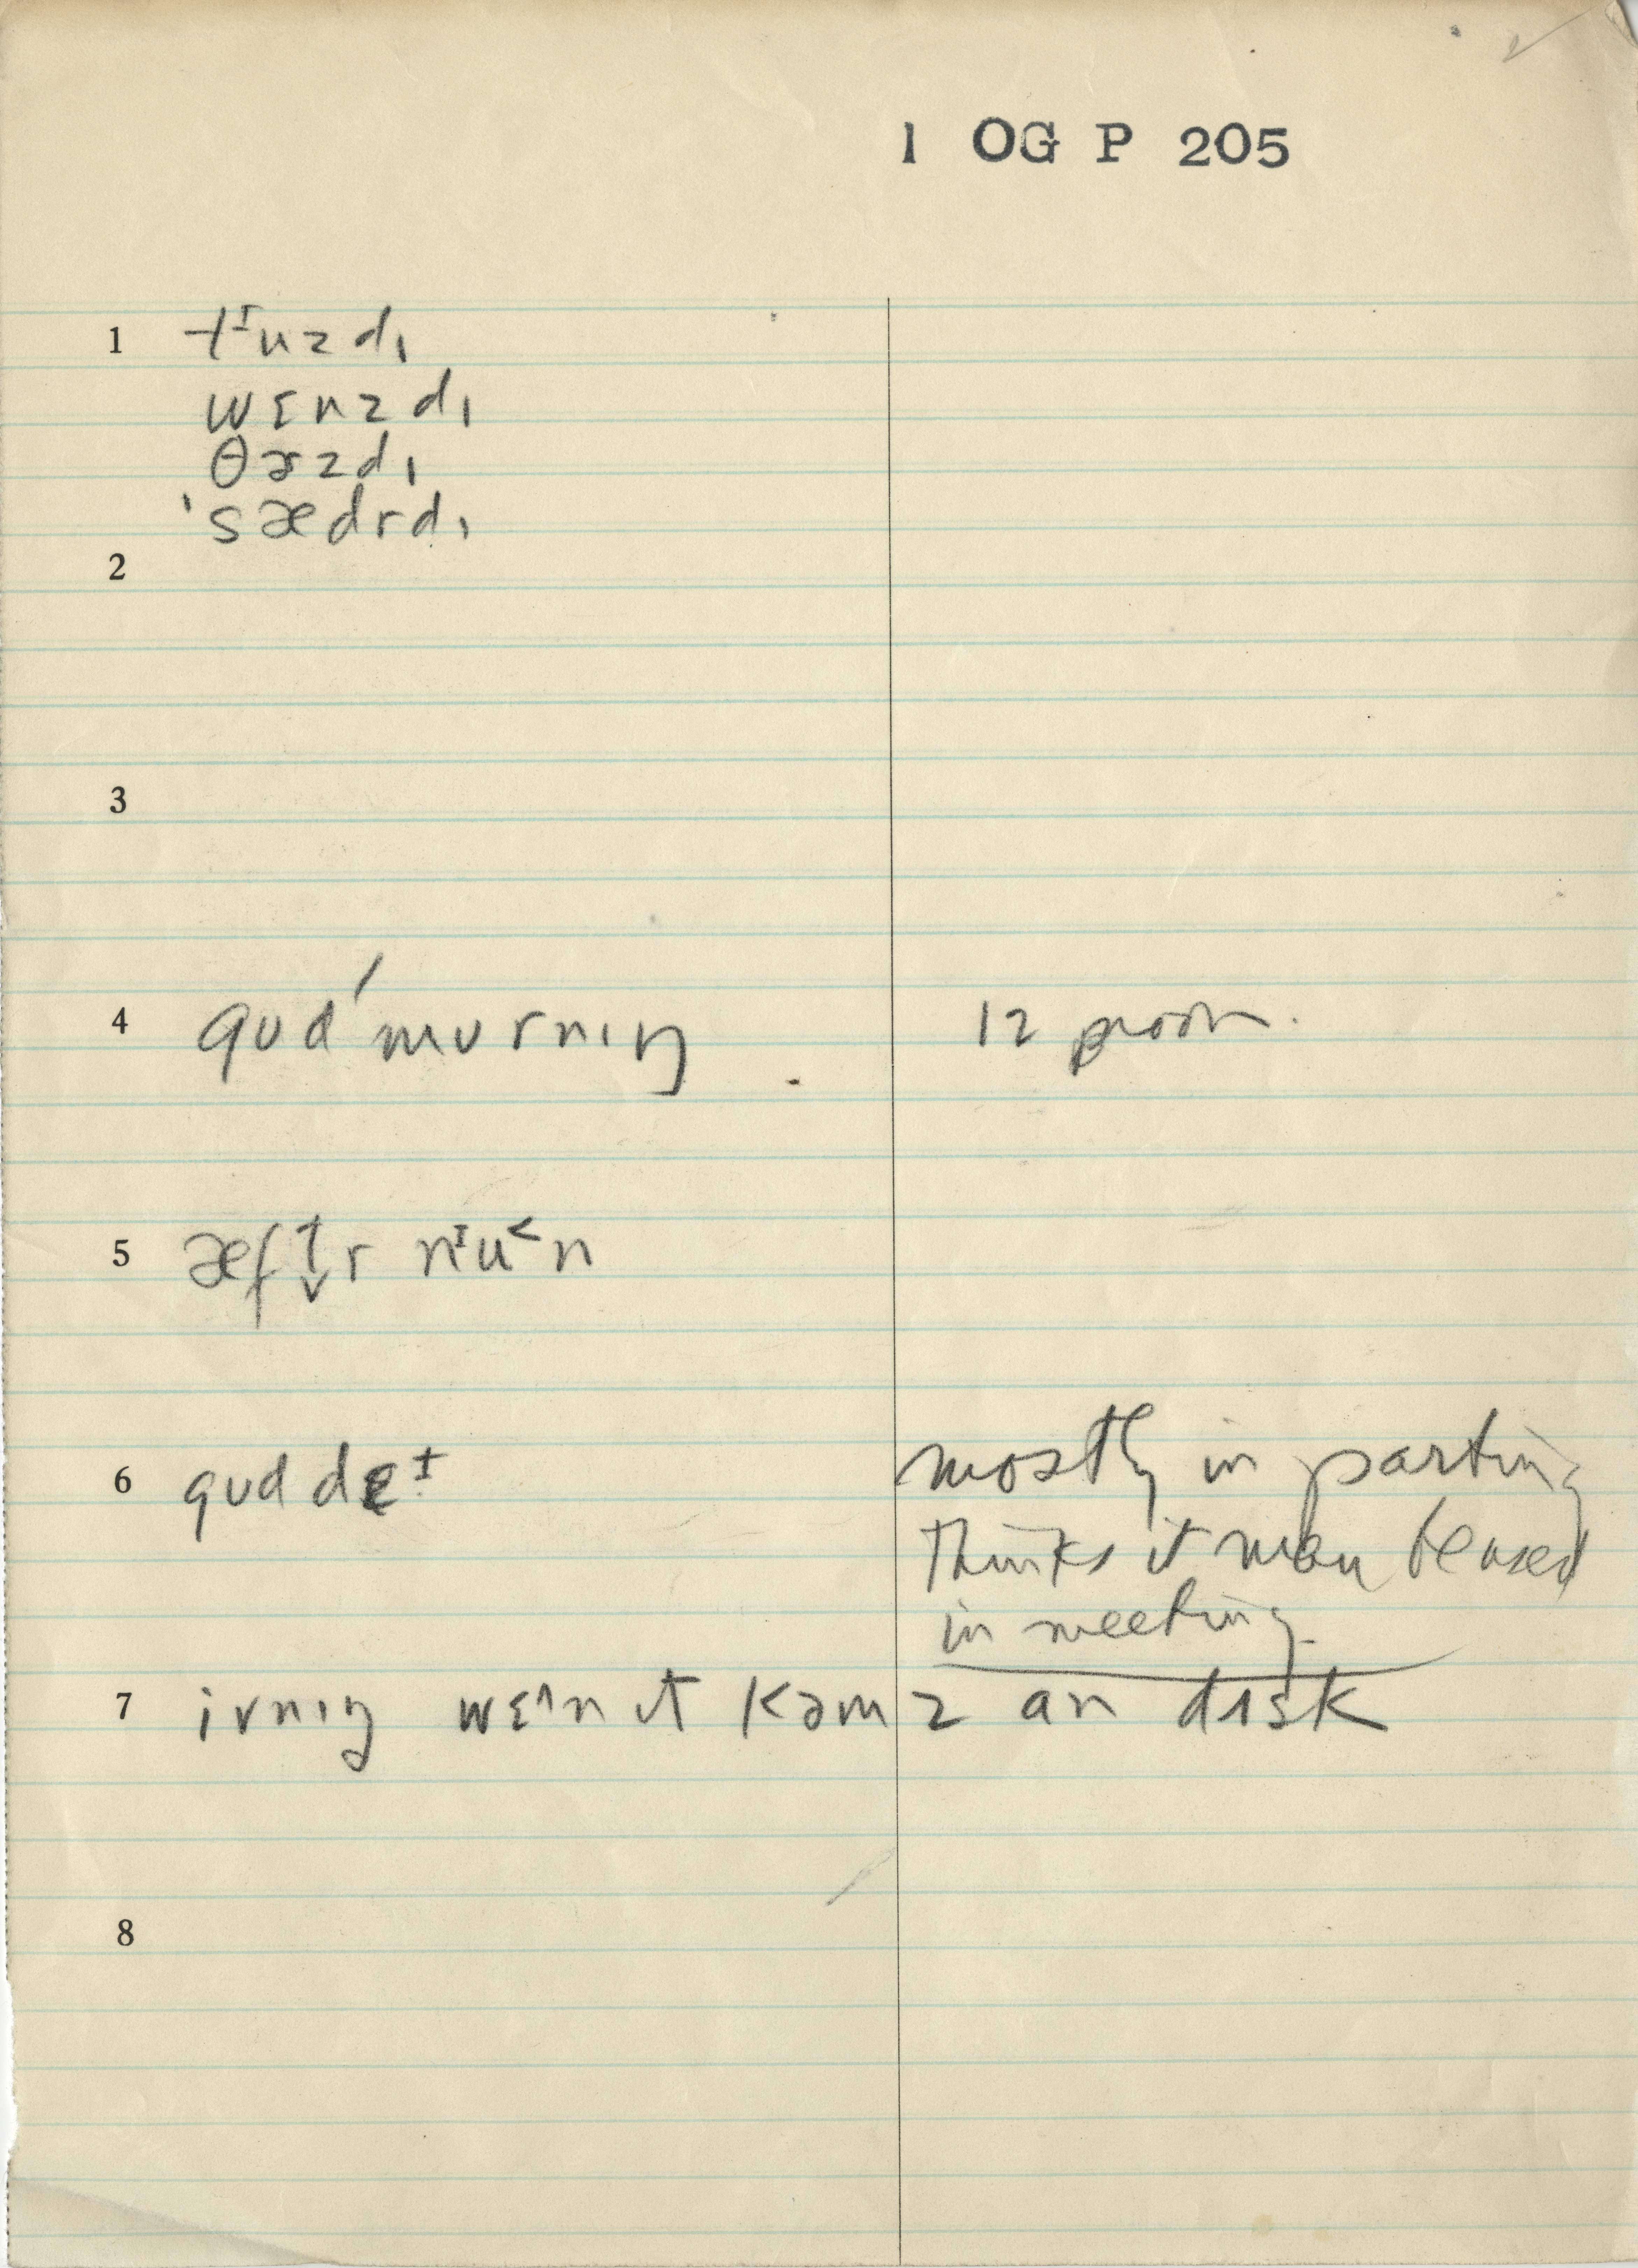 1 OG P 205
1 tᶦuzdɪ
wɛnzdɪ
θɚzdɪ
'sædrdɪ
2
3
4 gud'mʊrnɪŋ 12 noon.
5 æftr nᶦu˂n
6 gud deᶦ mostly in parting
thinks it may be used
in meeting
7 ivnɪŋ wɛ^n ɪt kəmz an dɪsk
8